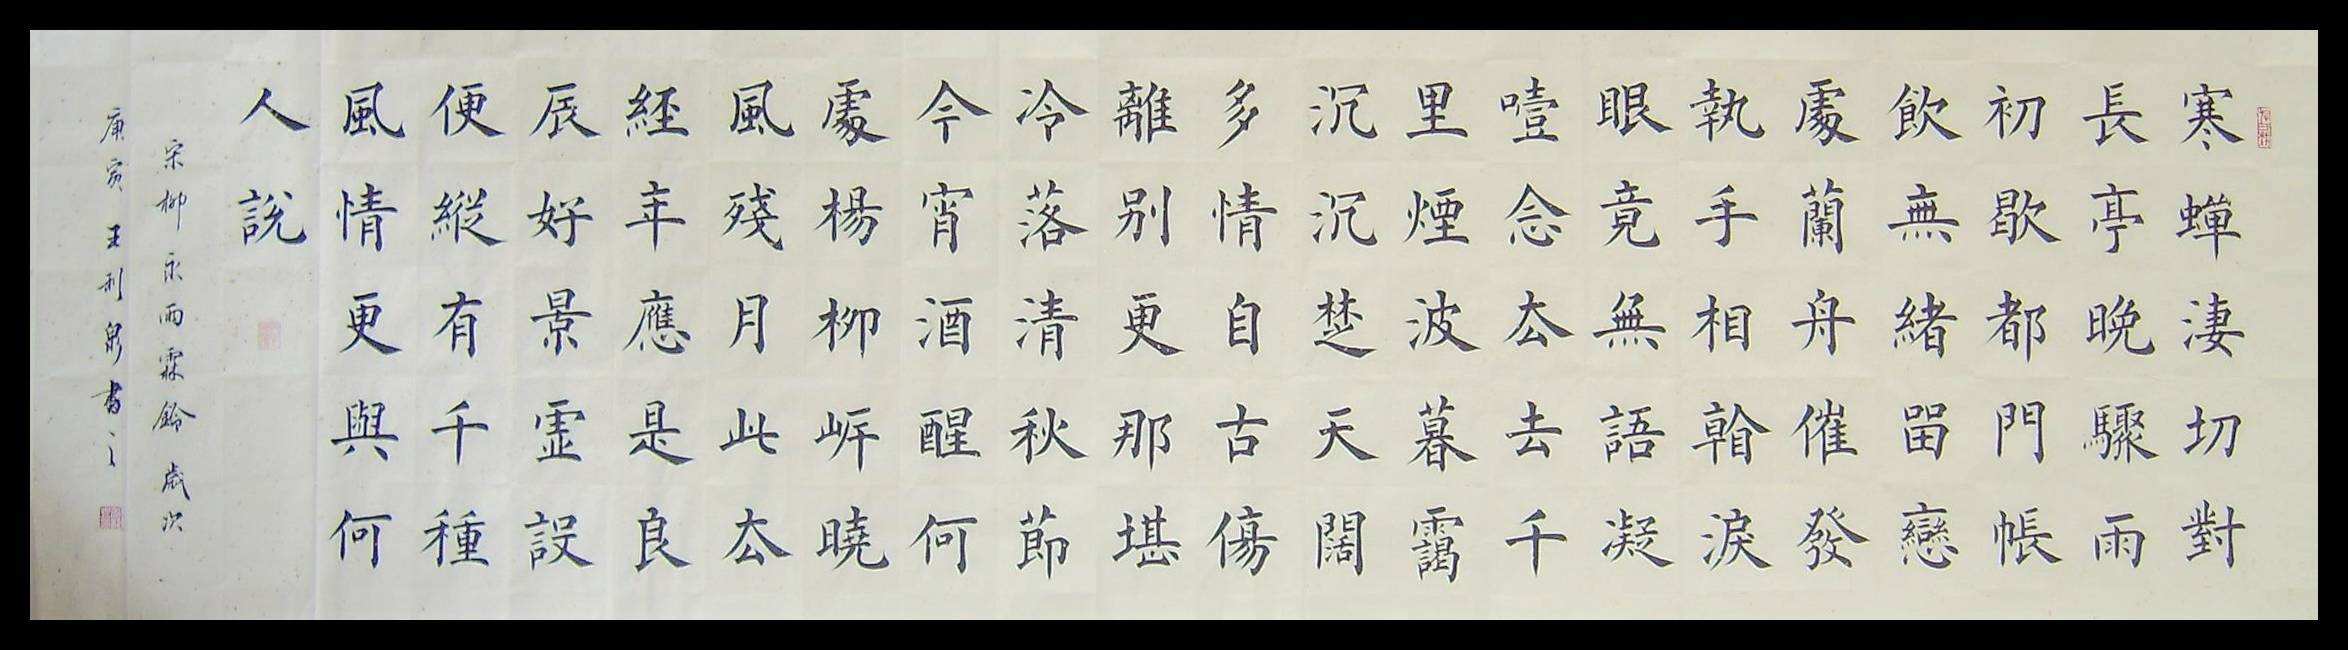 寒蟬淒切對
長亭晚驟雨
初歇都門帳
飲無緒留戀
處蘭舟催發
執手相看淚
眼竟無語凝
噎念厺去千
里煙波暮靄
沉沉楚天闊
多情自古傷
離別更那堪
冷落清秋節
今宵酒醒何
處楊柳岸曉
風殘月此厺
經年應是良
辰好景虛設
便縱有千種
風情更與何
人說
宋柳永雨霖鈴歲次
庚寅王利泉書之